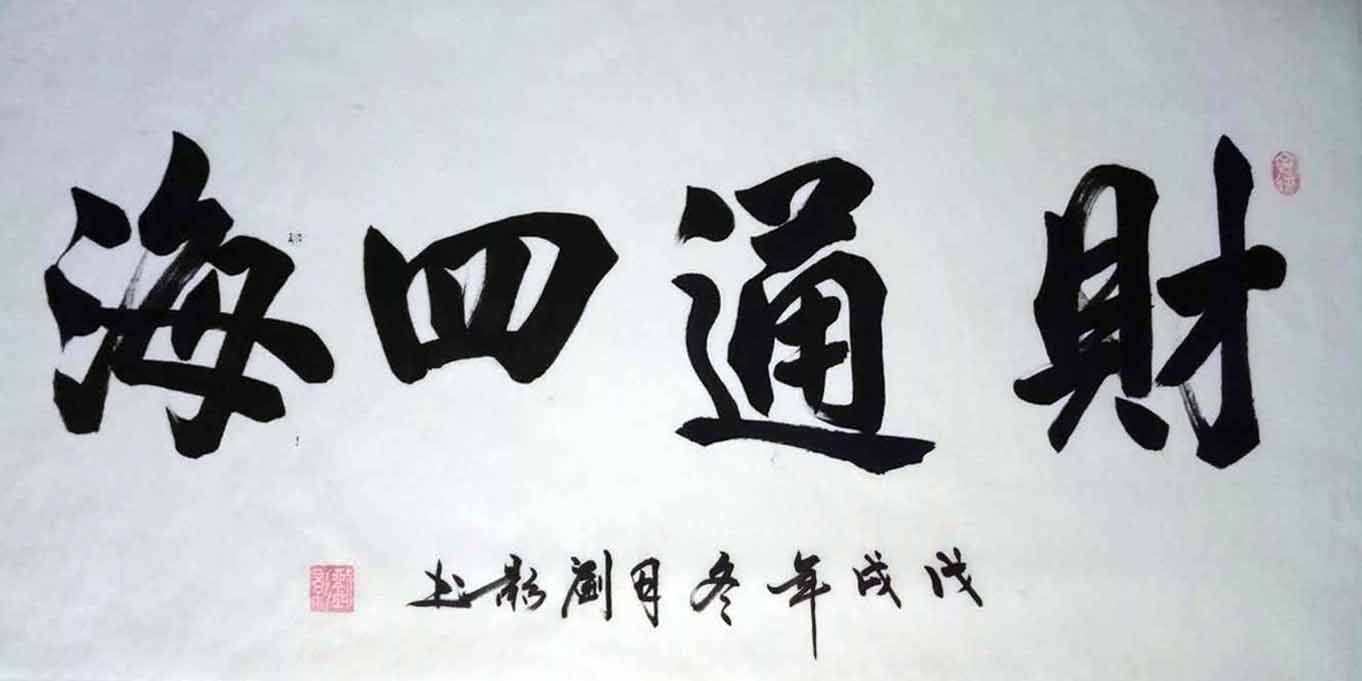 財通四海
戊戌年冬月劉影书